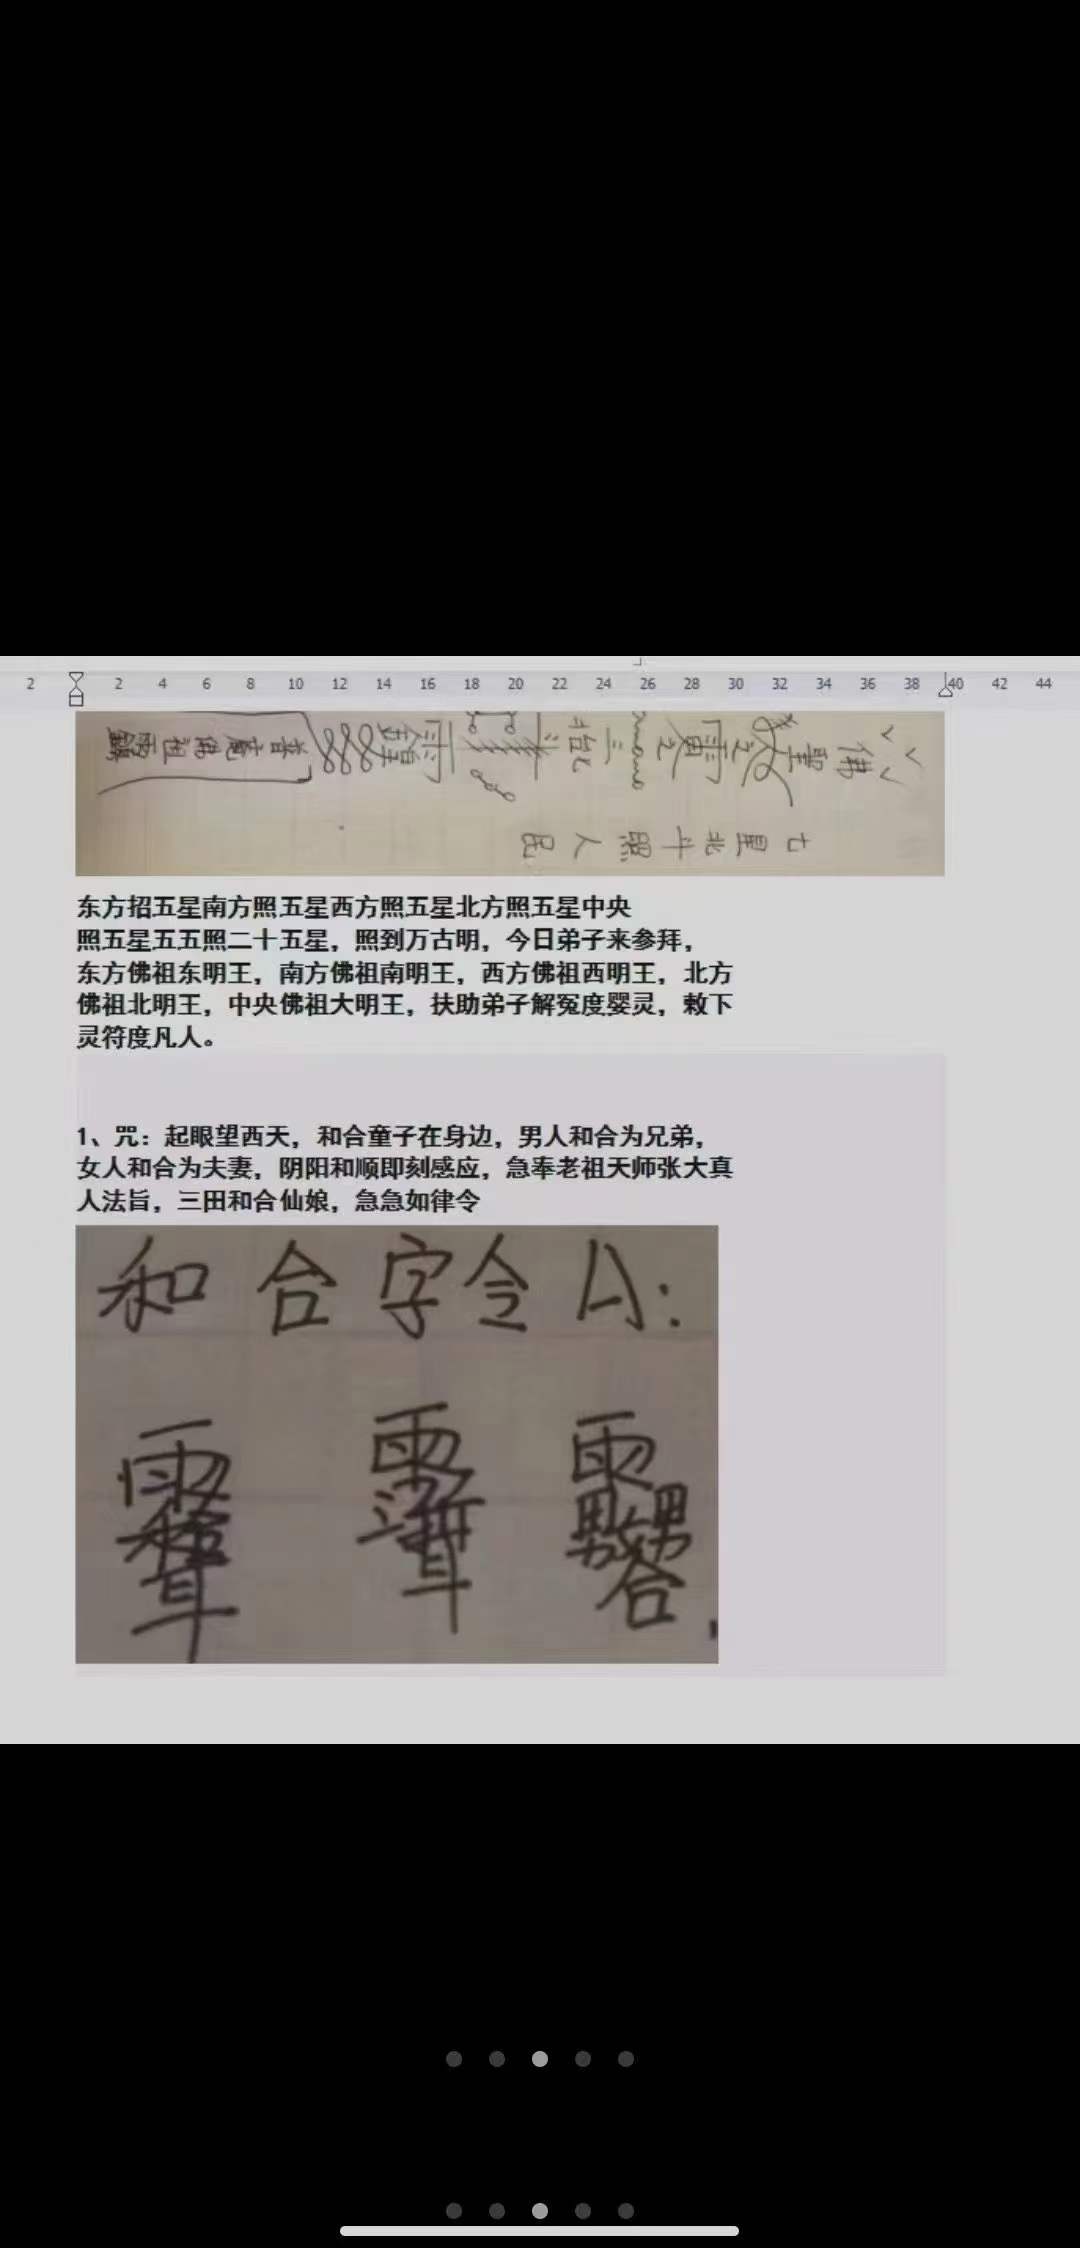 2 2 4 6 8 10 12 14 16 18 20 22 24 26 28 30 32 34 36 38 40 42 44
佛
聖
普庵佛祖
七星北斗照人民
东方招五星南方照五星西方照五星北方照五星中央
照五星五五照二十五星，照到万古明，今日弟子来参拜，
东方佛祖东明王，南方佛祖南明王，西方佛祖西明王，北方
佛祖北明王，中央佛祖大明王，扶助弟子解冤度婴灵，敕下
灵符度凡人。
1、咒：起眼望西天，和合童子在身边，男人和合为兄弟，
女人和合为夫妻，阴阳和顺即刻感应，急奉老祖天师张大真
人法旨，三田和合仙娘，急急如律令
和合字令A：